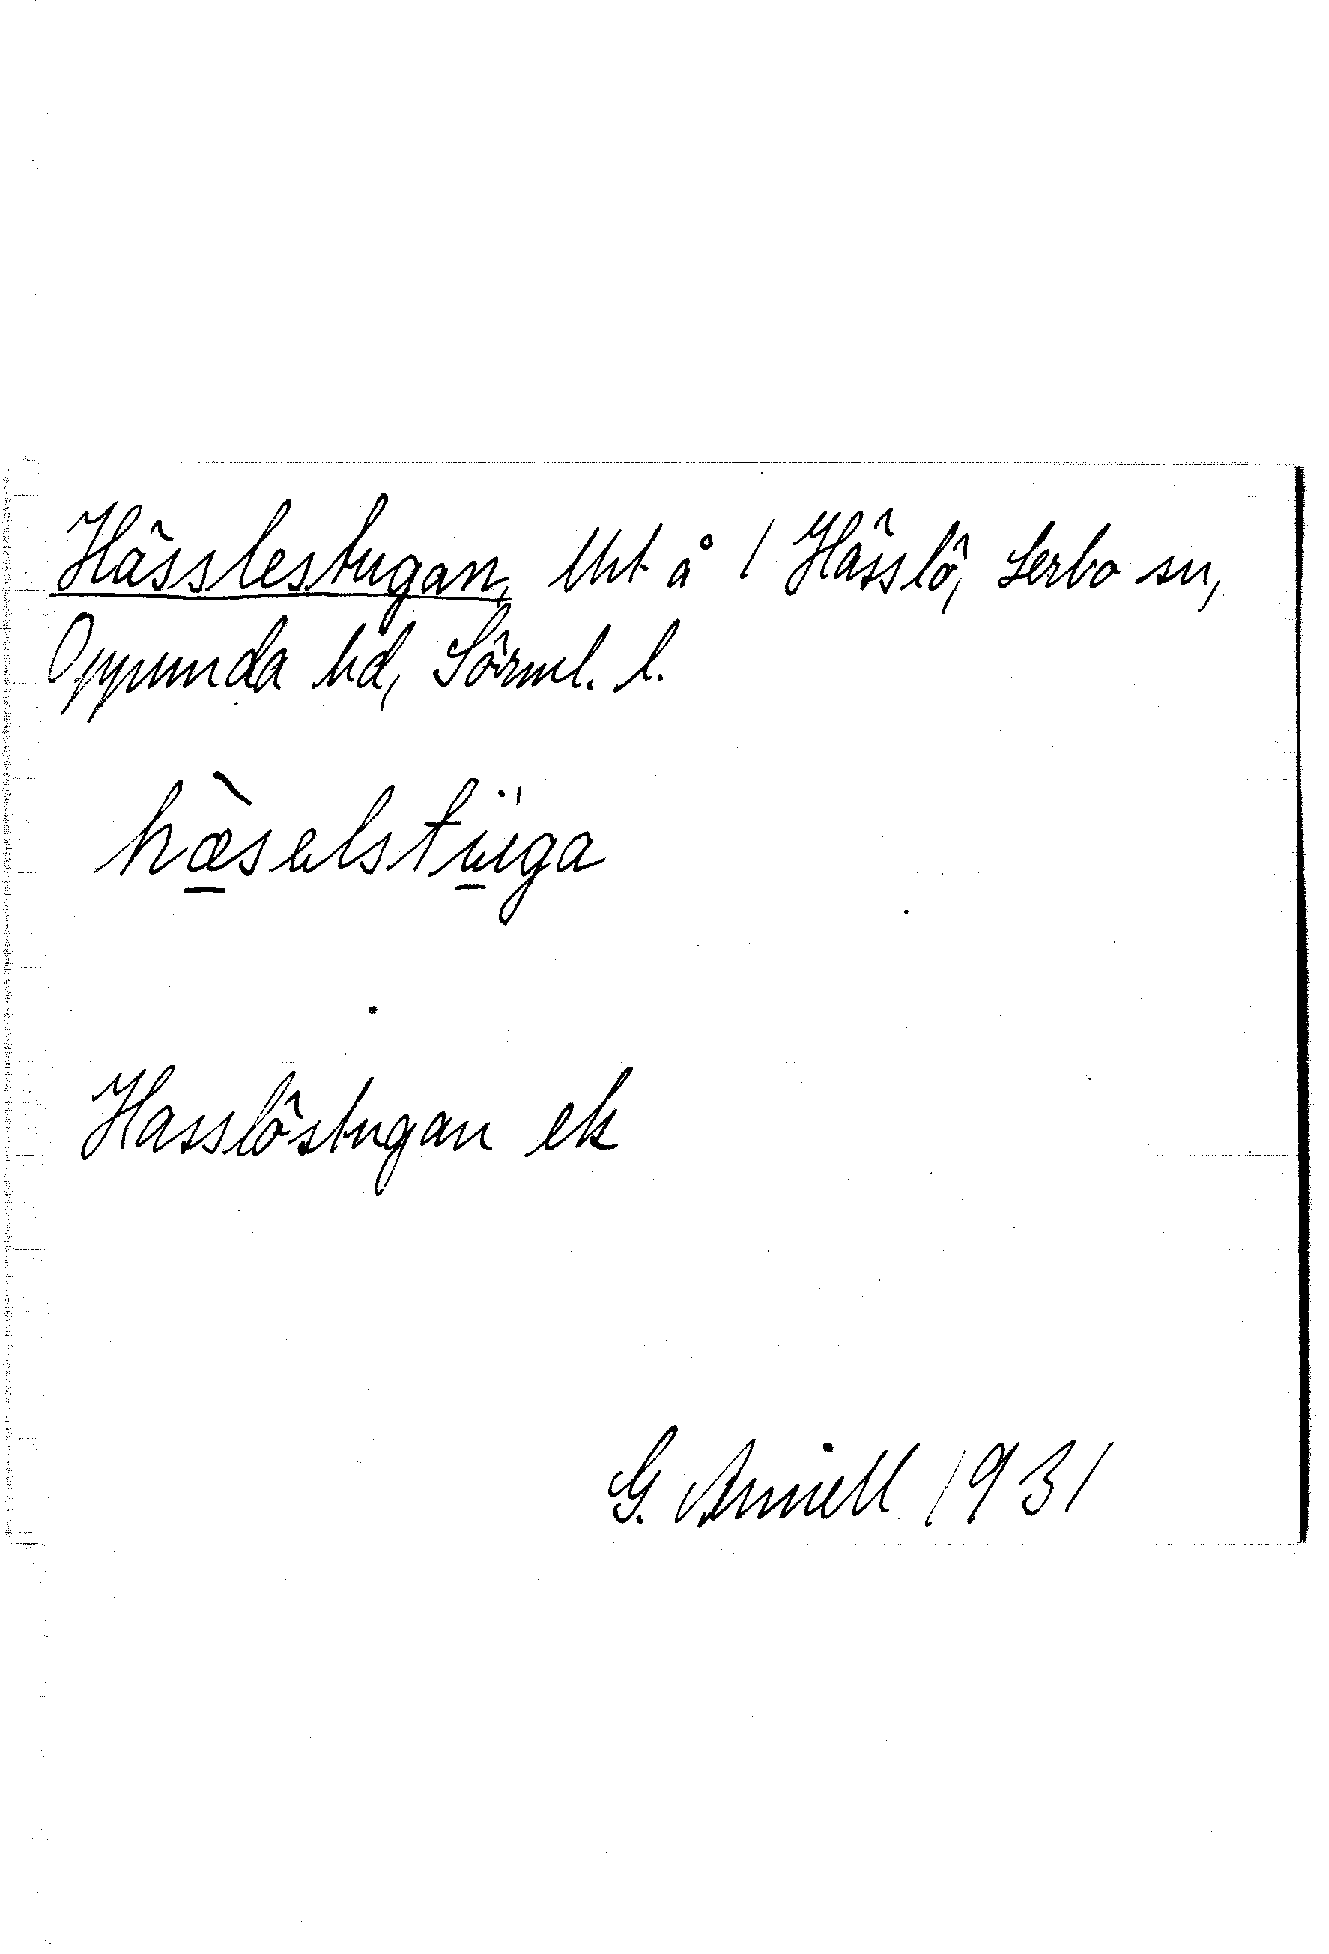 Hässlestugan, lht å 1 Hässlö, Lerbo sn,
Oppunda hd, Sörml. l.
hæ̀selstüga
Hasslöstugan ek
G. Amnell 1931